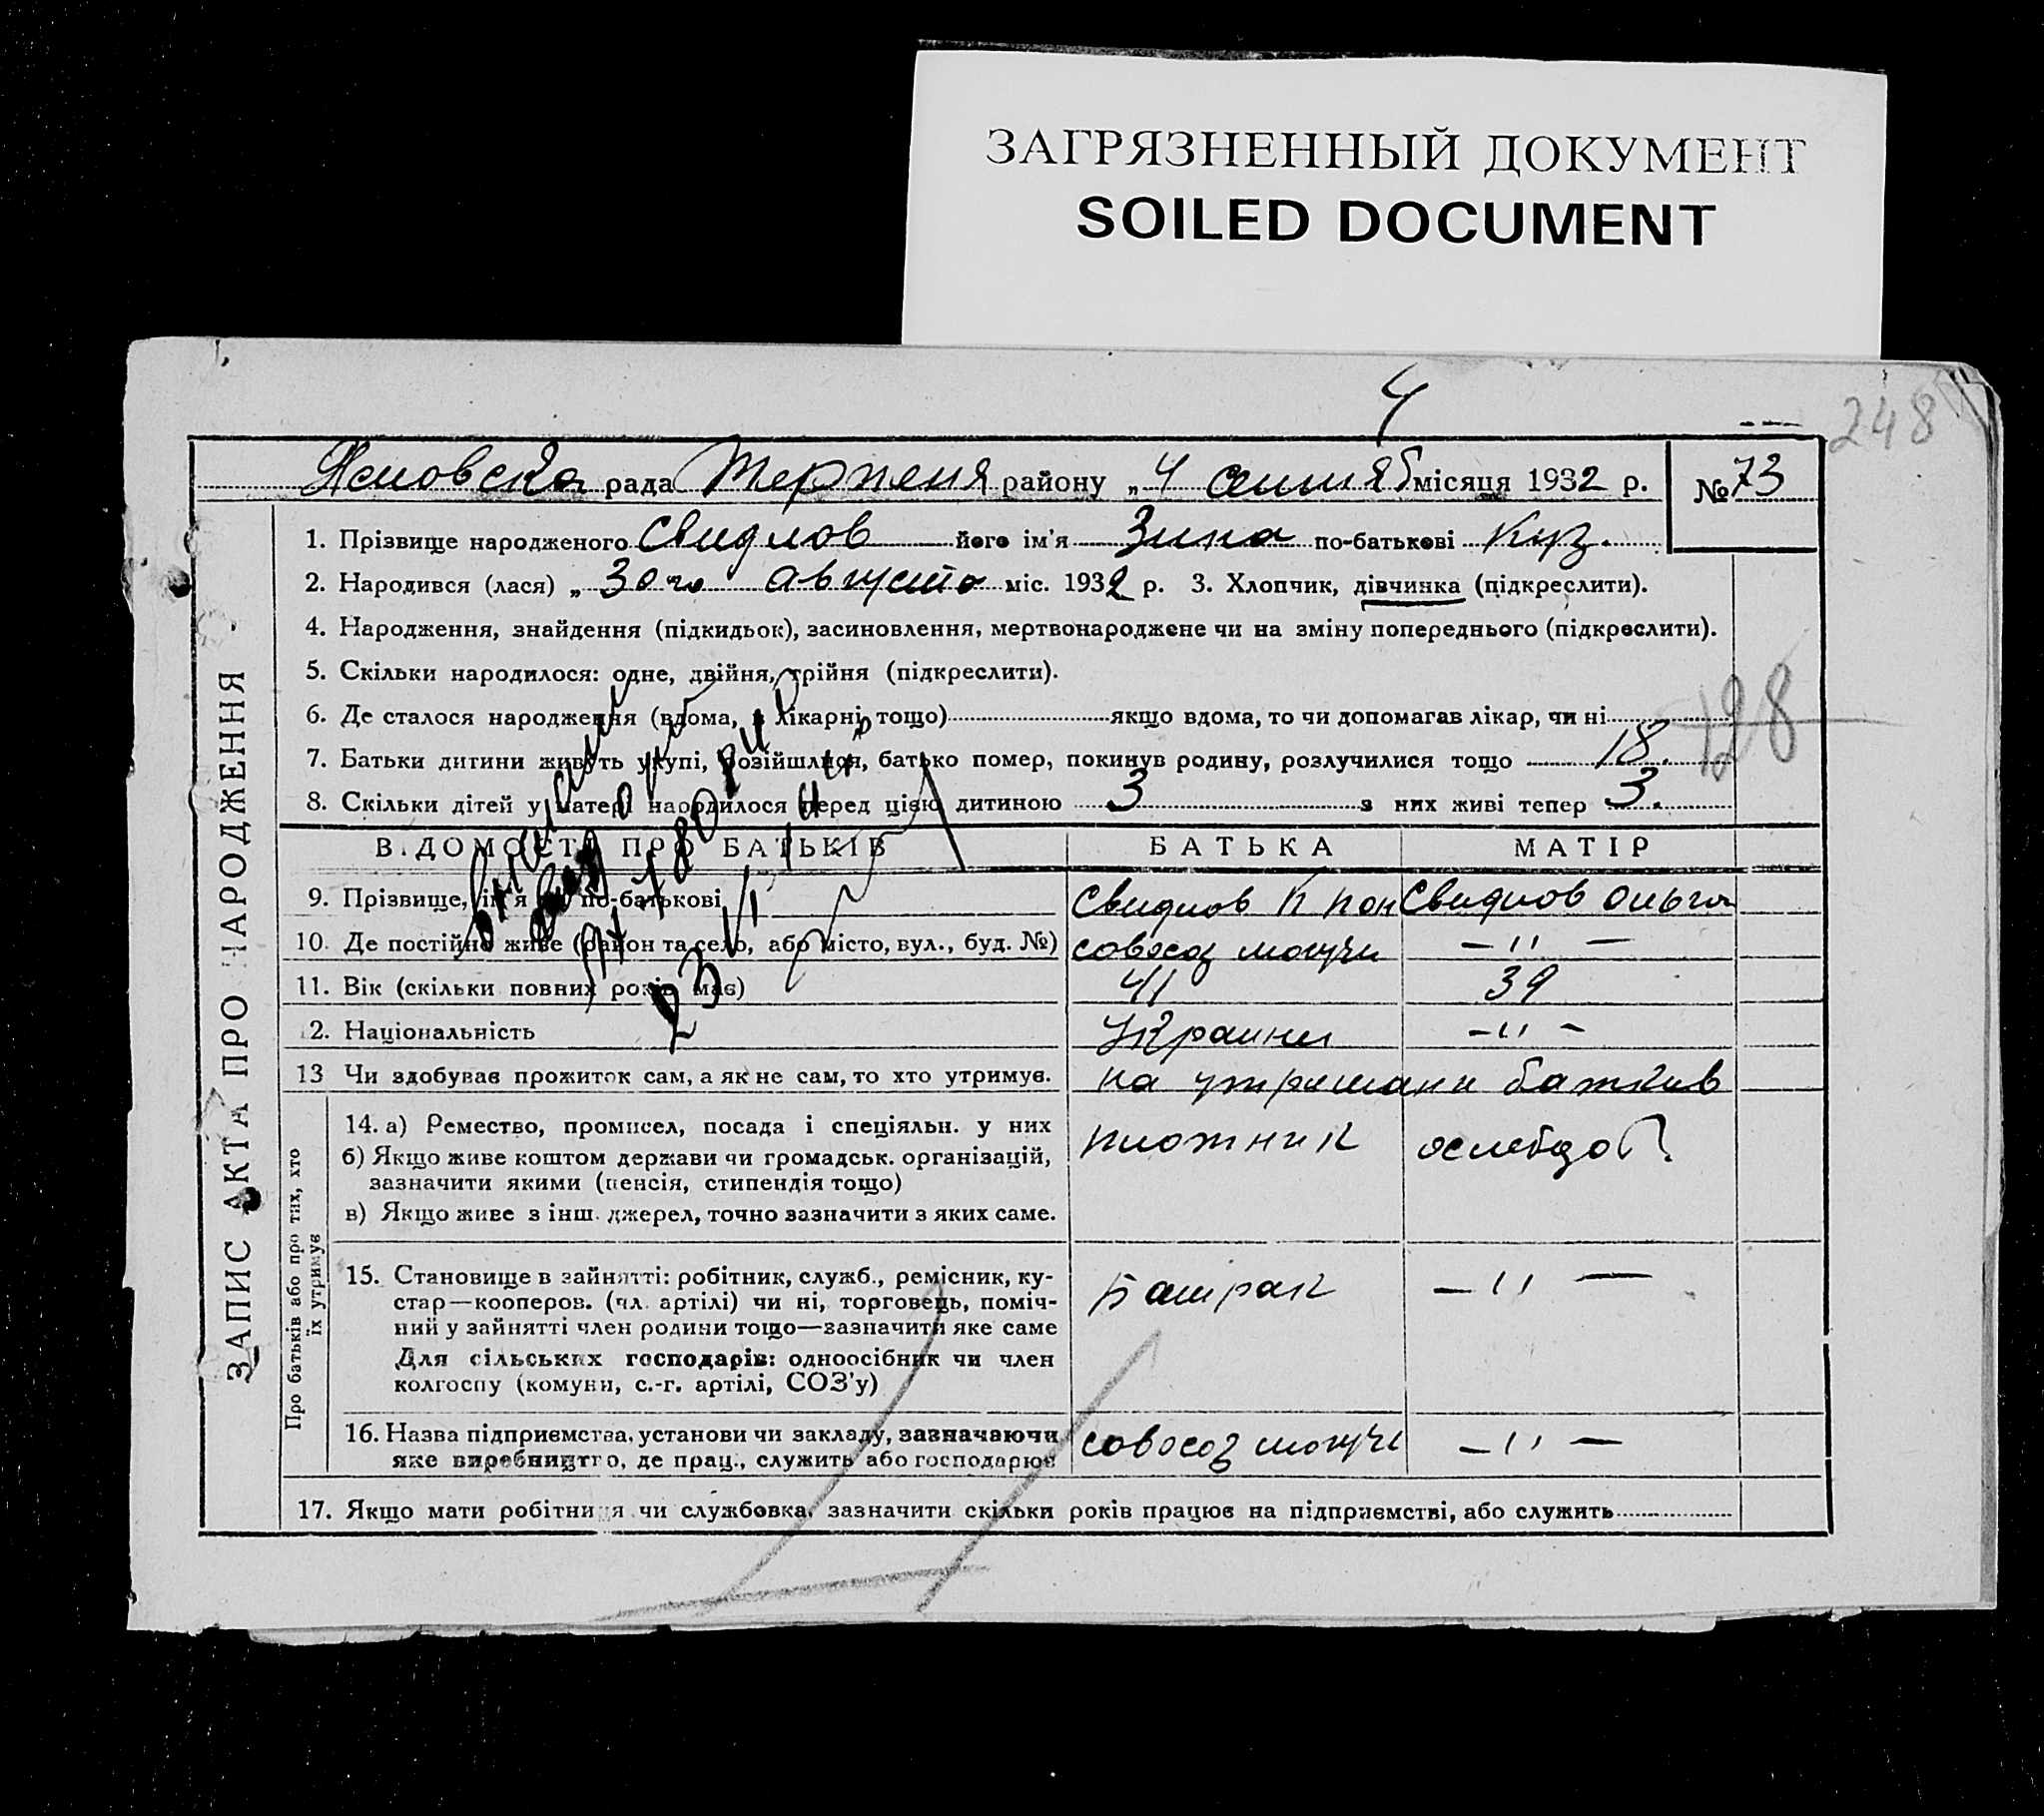 ЗАГРЯЗНЕННЫЙ ДОКУМЕНТ
SOILED DOCUMENT
4
248
рада района району „4 місяця 1932 р. № 73
1. Прізвище народженого Свидлов його ім'я Зина по-батькові Куз.
2. Народився (лася) „30го августа міс. 1932 р. 3. Хлопчик, дівчинка (підкреслити).
4. Народження, знайдення (підкидьок), засиновлення, мертвонароджене чи на зміну попереднього (підкреслити).
5. Скільки народилося: одне, двійня, трійня (підкреслити).
6. Де сталося народження (вдома, в лікарні, тощо) якщо вдома, то чи допомагав лікар, чи ні
128
7. Батьки дитини живуть укупі, розійшлися, батько помер, покинув родину, розлучилися тощо 18.
8. Скільки дітей у матері народилося перед цією дитиною 3 з них живі тепер 3.
ВІДОМОСТІ ПРО БАТЬКІВ БАТЬКА МАТІР
9. Прізвище, ім'я по-батькові Свидлов Свидлов Ольга
10. Де постійно живе (район та село, або місто, вул., буд. №) совхоз — " —
11. Вік (скільки повних років має) 41 39
12. Національність Украини — " —
13 Чи здобував прожиток сам, а як не сам, то хто утримує. на утримани батькив
14. а) Ремество, промисел, посада і спеціяльн. у них плотник
б) Якщо живе коштом держави чи громадськ. організацій,
зазначити якими (пенсія, стипендія тощо)
в) Якщо живе з інш. джерел, точно зазначити з яких саме.
15. Становище в зайнятті: робітник, служб., ремісник, ку-
стар—кооперов. (чл. артілі) чи ні, торговець, поміч-
ний у зайнятті член родини тощо—зазначити яке саме
Для сільських господарів: одноосібник чи член
колгоспу (комуни, с.-г. артілі, СОЗ'у)
Батрак — " —
16. Назва підприємства, установи чи закладу, зазначаючи
яке виробництво, де прац., служить або господарює
совхоз — " —
17. Якщо мати робітниця чи службовка, зазначити скільки років працює на підприємстві, або служить
ЗАПИС АКТА ПРО НАРОДЖЕННЯ
Про батьків або про тих, хто
їх утримує